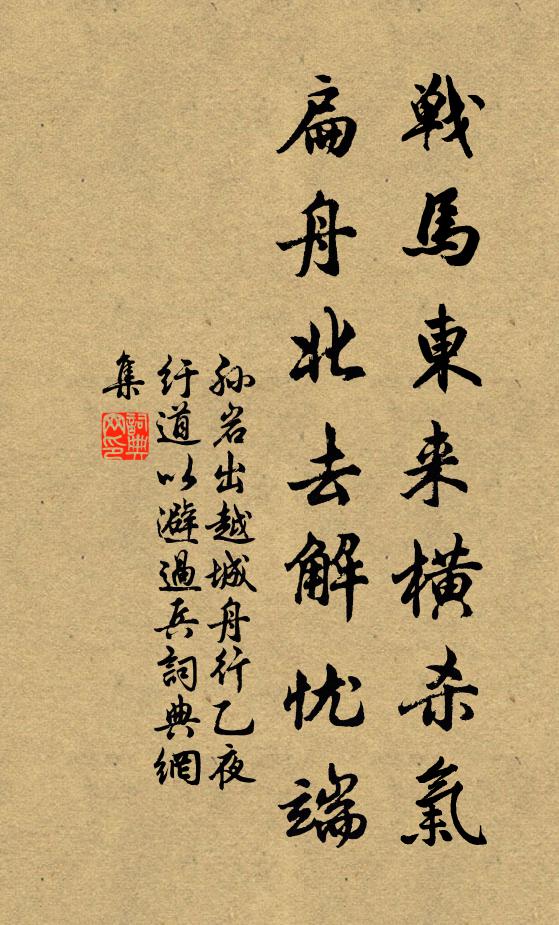 戦馬東来橫杀氣
扁舟北去解忧端
孙岩出越城舟行乙夜
纡道以避過兵詞典網
集
詞典
网印